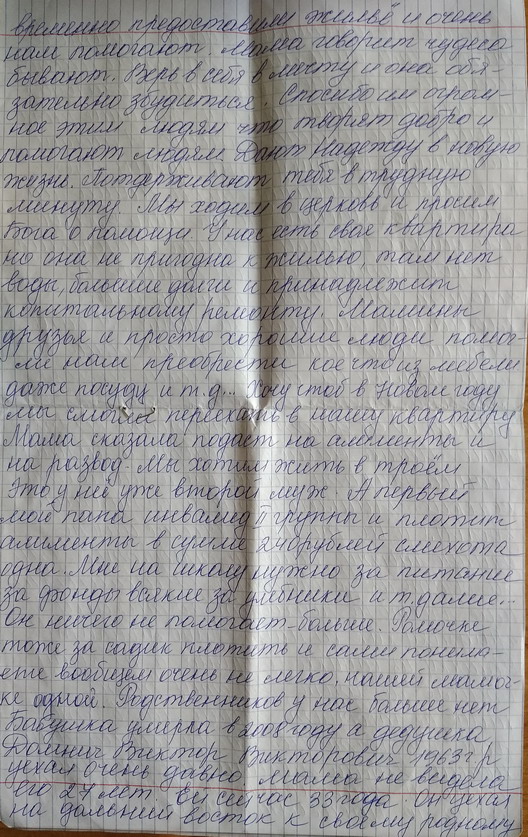 временно предоставили жильё и очень
нам помогают. Мама говорит чудеса
бывают. Верь в себя в мечту и она обя-
зательно збудиться. Спосибо им огром-
ное этим людям что творят добро и
помогают людям. Дают надежду в новую
жизнь. Потдерживают тебя в трудную
минуту. Мы ходим в церковь и просим
Бога о помощи. У нас есть своя квартира
но она не пригодна к жилью, там нет
воды, большие долги и принадлежит
копитальному ремонту. Мамины
друзья и просто хорошие люди помог-
ли нам преобрести кое что из мебели
даже посуду и т.д... Хочу чтоб в Новом году
мы смогли переехать в нашу квартиру
Мама сказала подаст на алименты и
на развод. Мы хотим жить в троём
Это у неё уже второй муж. А первый
мой папа инвалид II группы и плотит
алименты в сумме 240рублей смехота
одна. Мне на школу нужно за питание
за фонды всякие за учебники и т.далие...
Он ничего не помогает больше. Ромочке
тоже за садик плотить и сами понима-
ете вообщем очень не легко, нашей мамоч-
ке одной. Родственников у нас больше нет
Бабушка умерла в 2008 году а дедушка
Виктор Викторович 1963г/р
уехал очень давно, мама не видела
его 27 лет. Ей сейчас 33 года. Он уехал
на дальний восток к своему родному